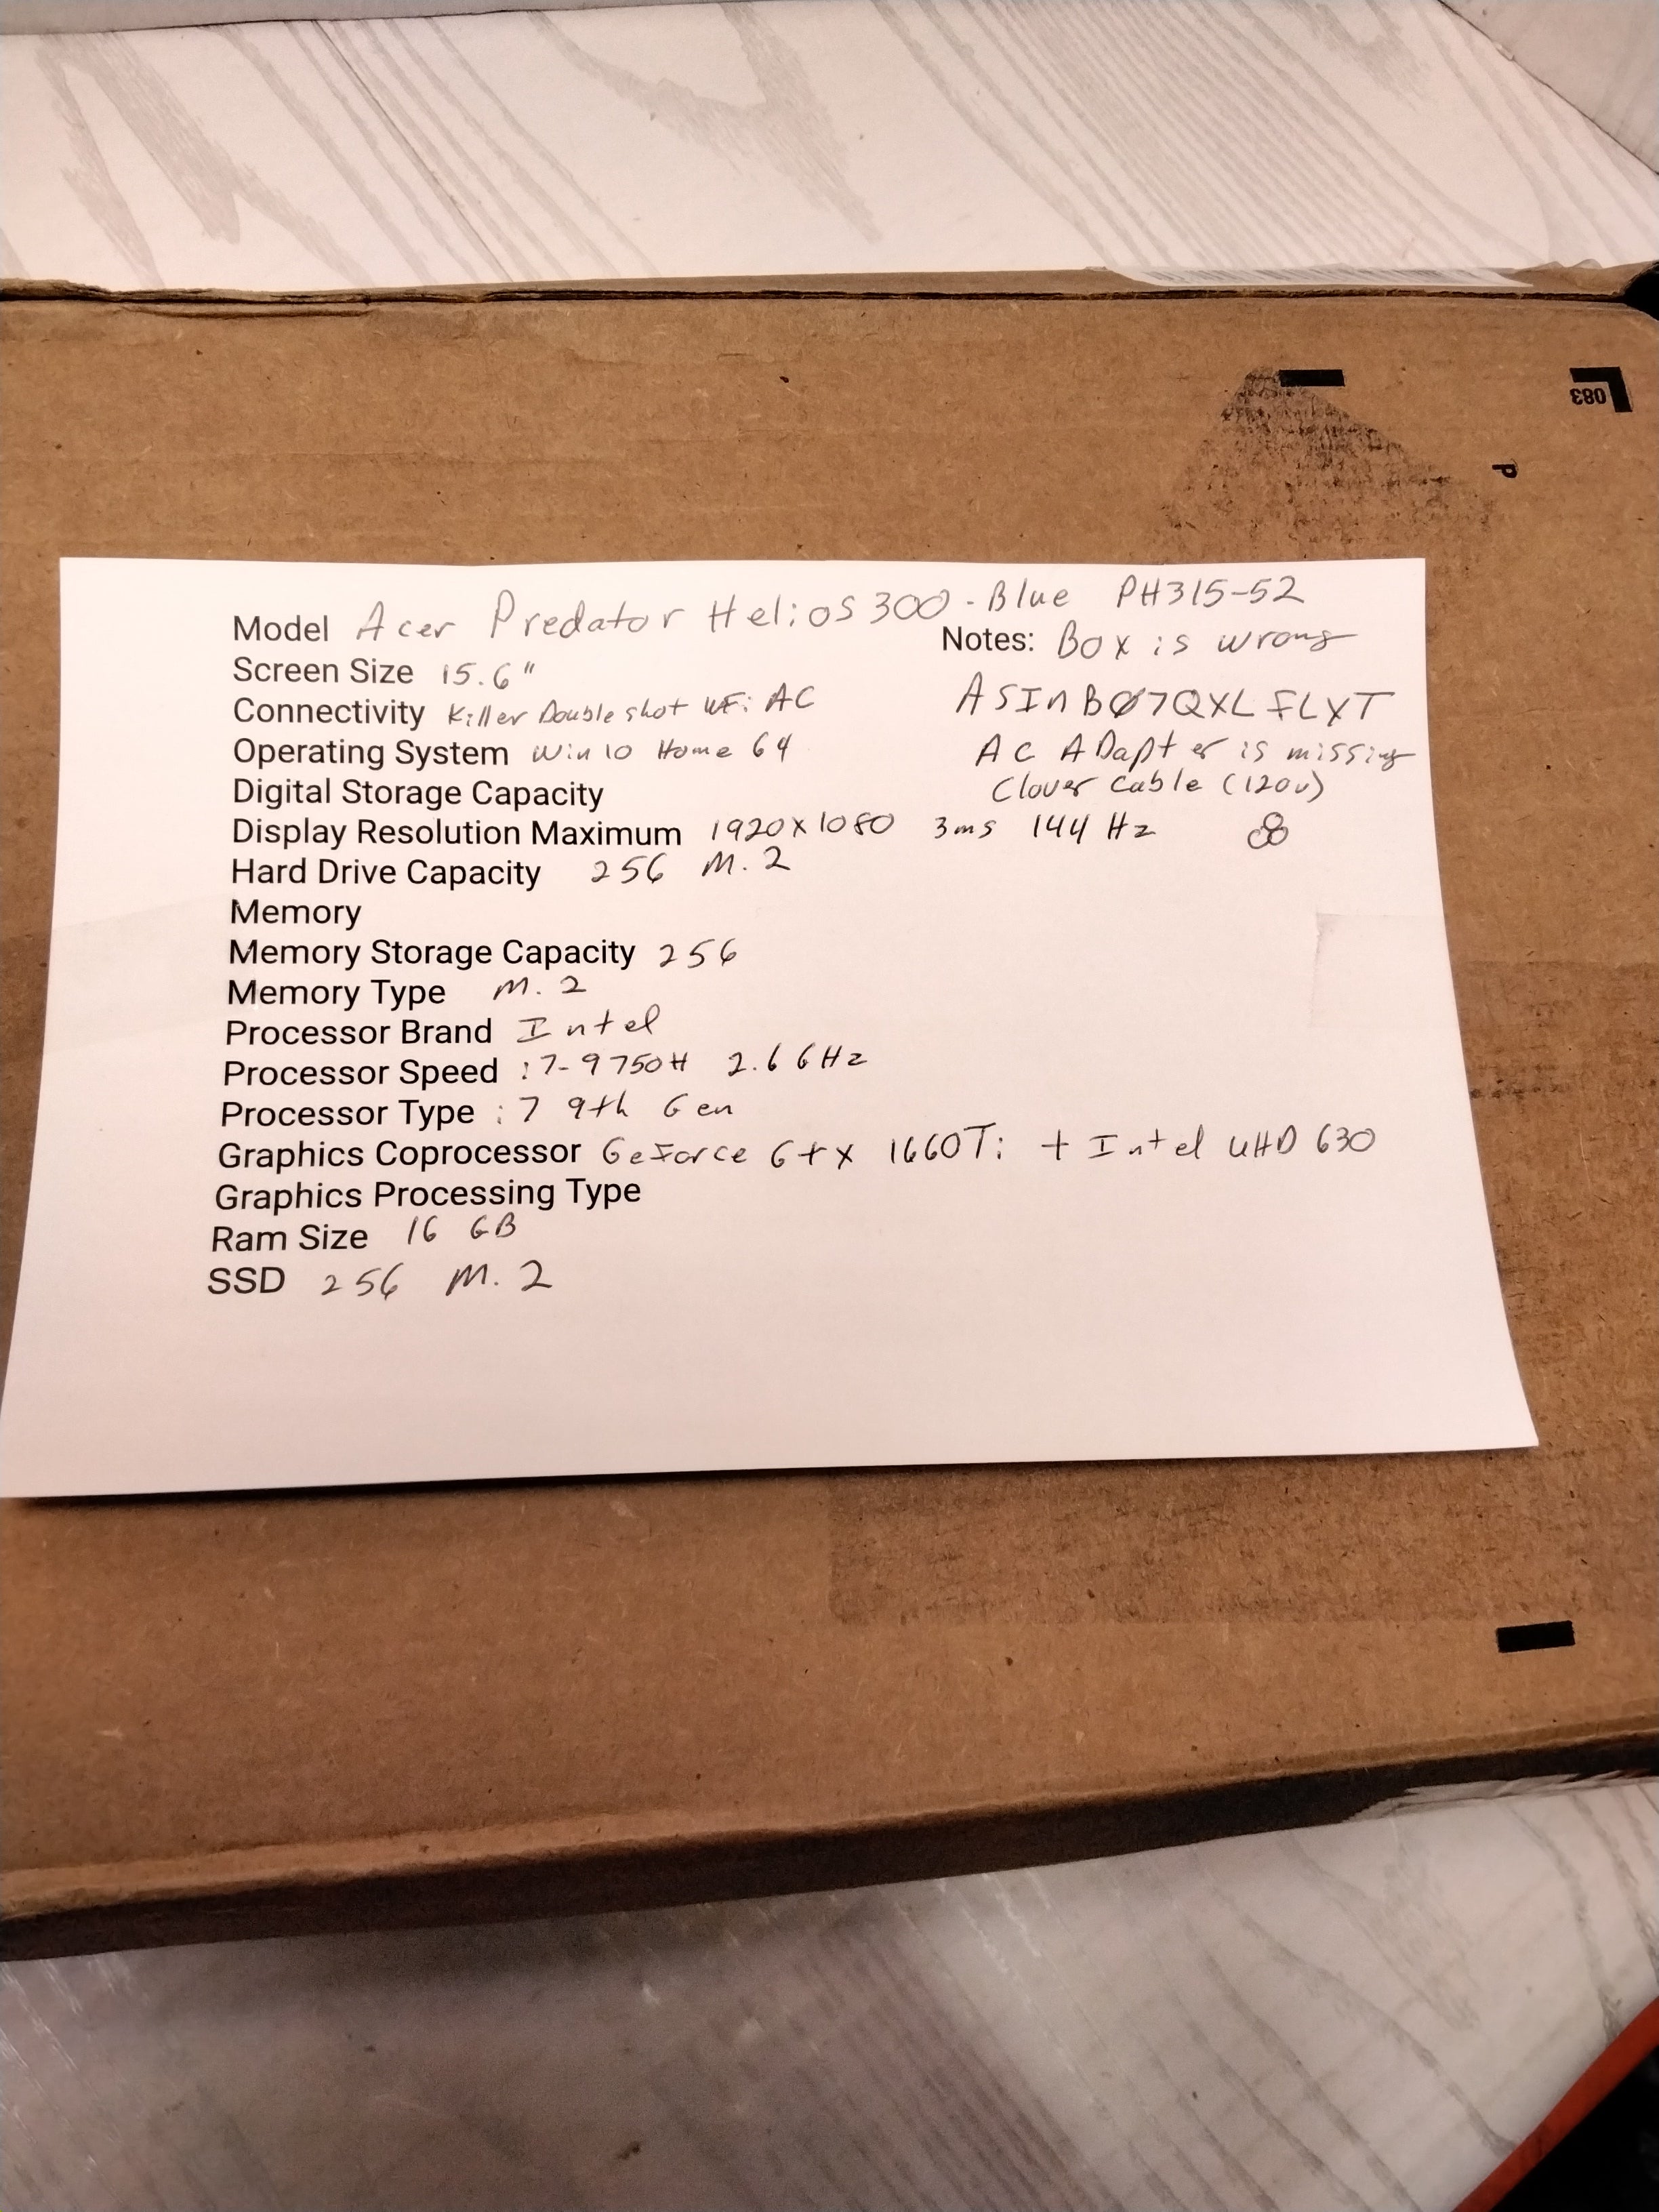 083
P
Model Acer Predator Helios 300 - Blue PH315-52
Notes: Box is wrong
Screen Size 15.6"
ASIN BØ7QXLFLXT
Connectivity Killer Doubleshot WFi AC
Operating System Win 10 Home 64
AC ADapter is missing
Clover Cable (120v)
Digital Storage Capacity
Display Resolution Maximum 1920x1080 3ms 144 Hz
Hard Drive Capacity 256 M.2
Memory
Memory Storage Capacity 256
Memory Type M.2
Processor Brand Intel
Processor Speed i7-9750H 2.6 GHz
Processor Type i7 9th Gen
Graphics Coprocessor GeForce Gtx 1660Ti + Intel UHD 630
Graphics Processing Type
Ram Size 16 GB
SSD 256 M.2